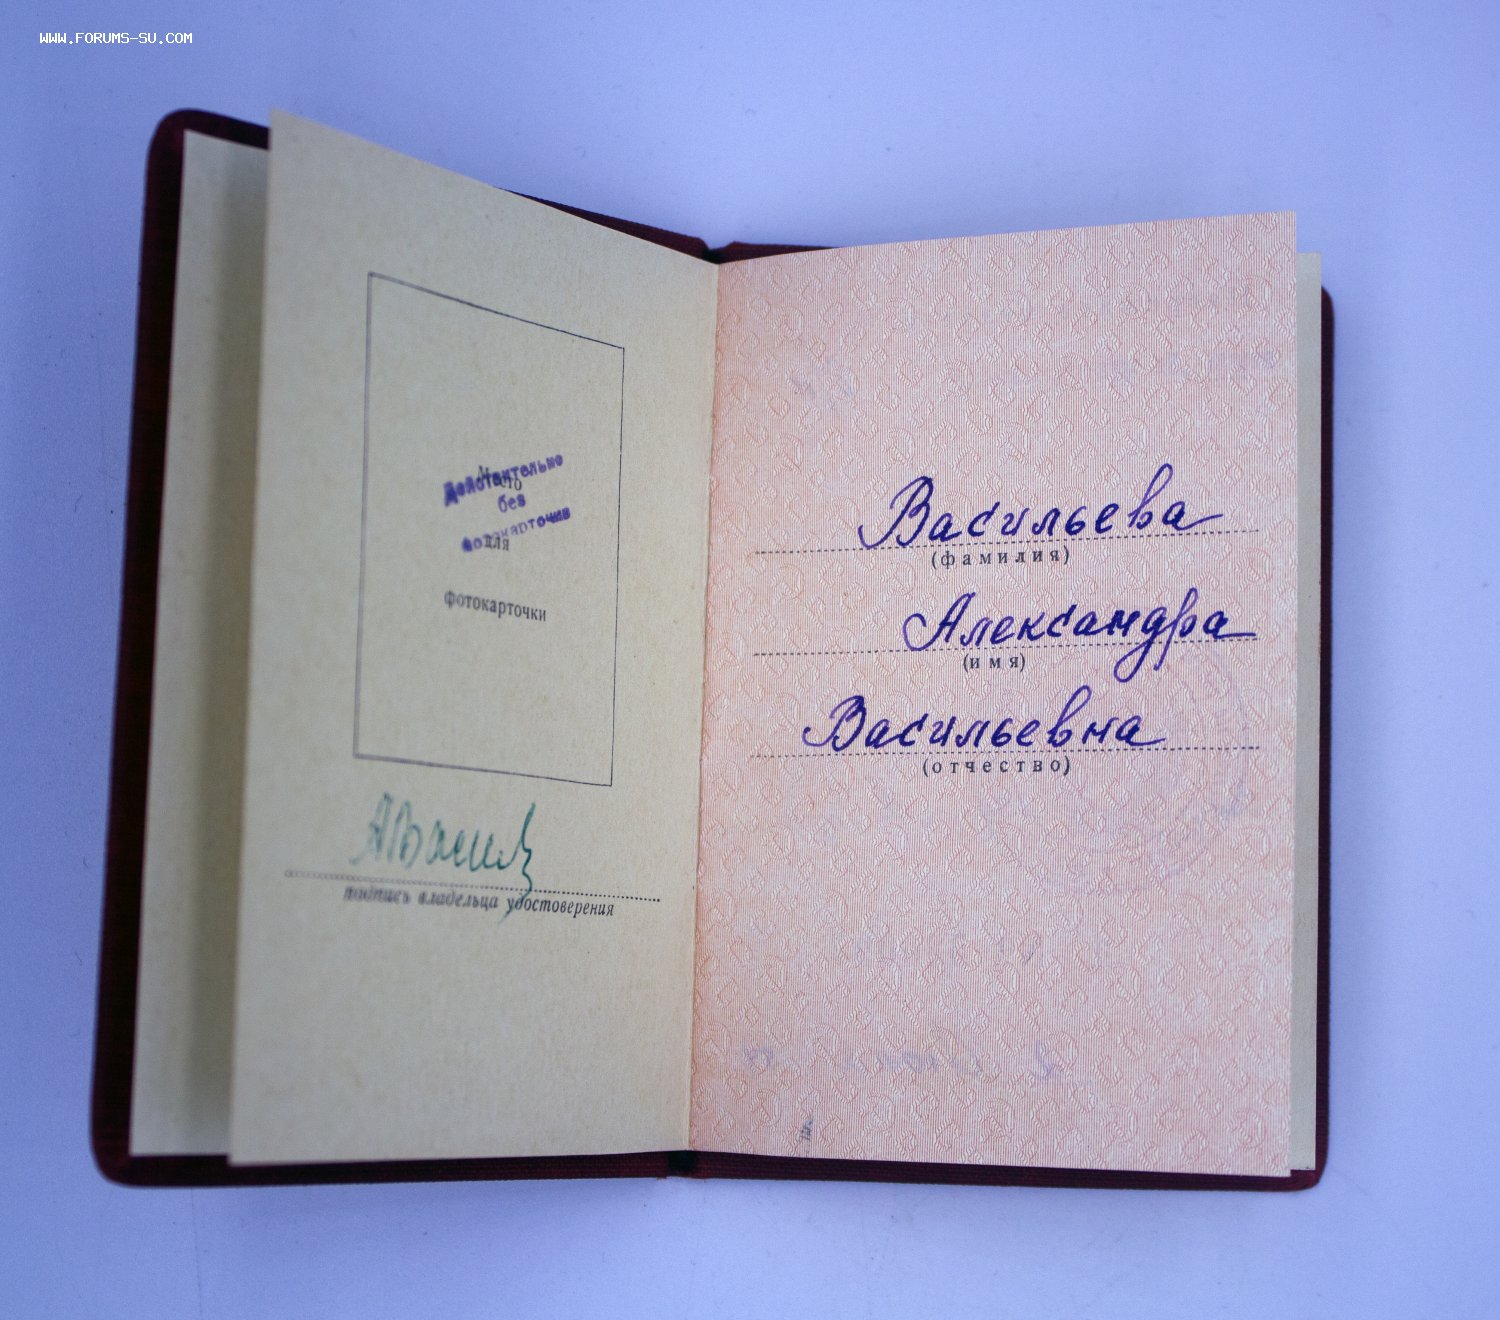 WWW.FORUMS-SU.COM
Место
для
фотокарточки
Действительно
без
фотокарточки
подпись владельца удостоверения
Васильева
(фамилия)
Александра
(имя)
Васильевна
(отчество)